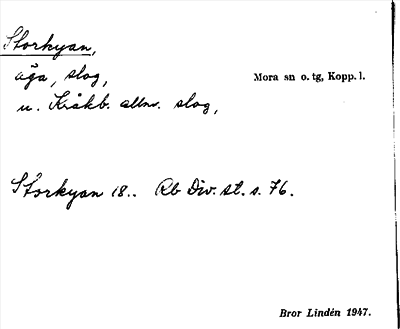 Storkyan,
äga, slog,
Mora sn o. tg, Kopp. l.
u. Kråkb. allm. slog,
Storkyan 18.. Rb Div. st. s. 76.
Bror Lindén 1947.